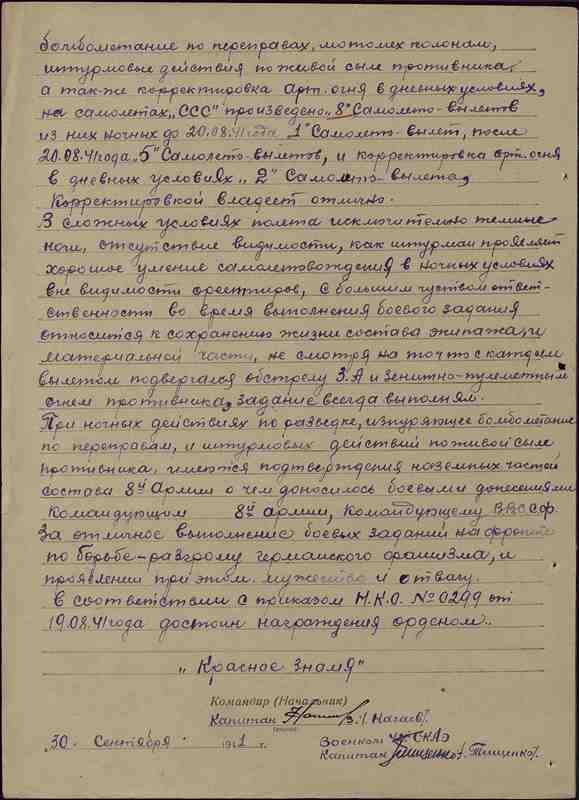 бомбометание по переправах, мотомех колонам,
штурмовые действия по живой силе противника,
а так-же корректировка арт. огня в дневных условиях,
на самолетах „ССС" произведено „8" Самолето-вылетов
из них ночных до 20.08.41 года „1" Самолето-вылет, после
20.08.41 года „5" Самолето-вылетов, и корректировка арт. огня
в дневных условиях „2" Самолето-вылета,
Корректировкой владеет отлично.
В сложных условиях полета исключительно темные
ночи, отсутствие видимости, как штурман проявляет
хорошое умение самолетовождения в ночных условиях
вне видимости ореентиров, с большим чуством ответ-
ственности во время выполнения боевого задания
относится к сохранению жизни состава экипажа, и
материальной части, не смотря на то что с каждым
вылетом подвергался обстрелу З.А и зенитно-пулеметным
огнем противника, задание всегда выполнял.
При ночных действиях по разведке, изнуряющее бомбометание
по переправам, и штурмовых действий по живой силе
противника, имеются подтверждения наземных частей
состава 8й Армии о чем доносилось боевыми донесениями
Командующим 8й армии, Командующему ВВС СФ.
За отличное выполнение боевых заданий на фронте
по борьбе-разгрому германского фашизма, и
проявлении при этом мужество и отвагу.
В соответствии с приказом Н.К.О. № 0299 от
19.08.41 года достоин награждения орденом..
„Красное Знамя"
Командир (Начальник)
Капитан В.1. Нагаев/.
„30. Сентября. 1941 г.
Военком СКАЭ
Капитан /. Тищенко/.